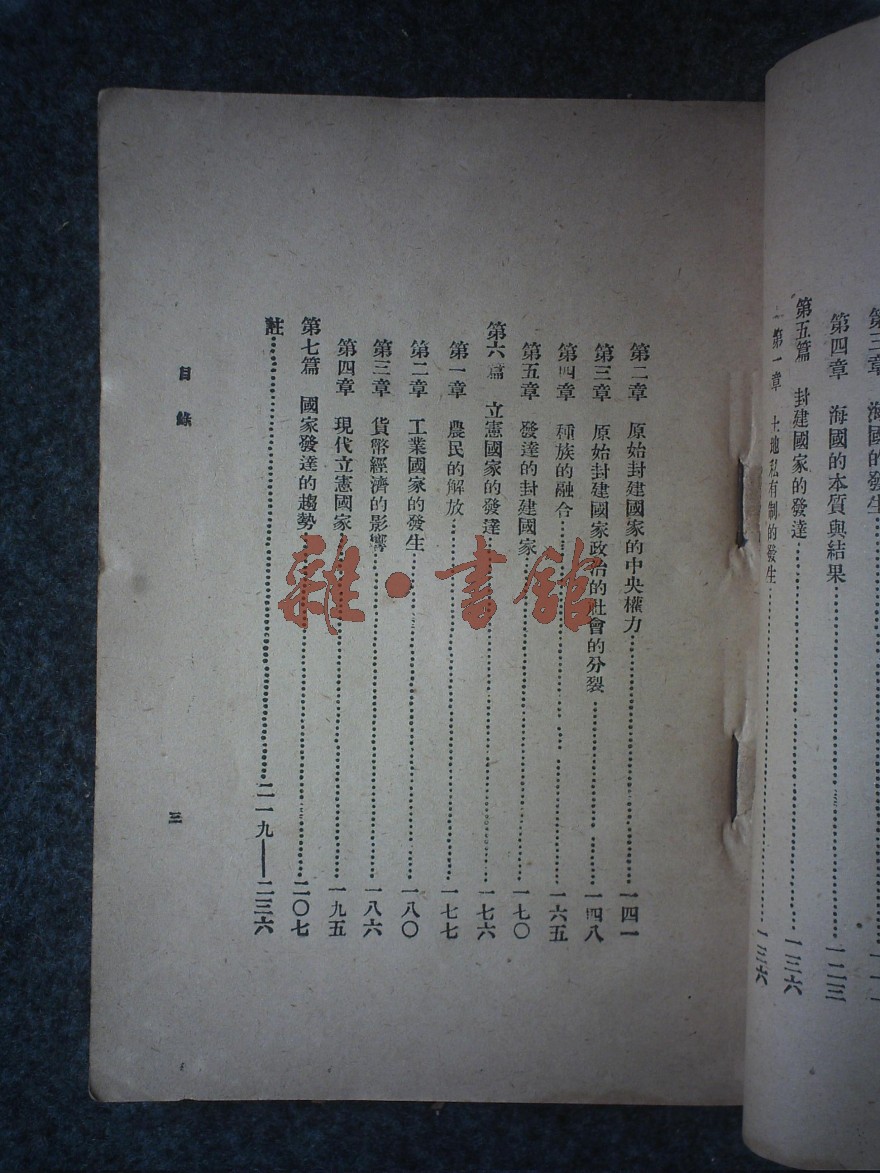 第四章 海國的本質與結果……一二三
第五篇 封建國家的發達……一三六
第一章 土地私有制的發生……一三六
第二章 原始封建國家的中央權力……一四一
第三章 原始封建國家政治的社會的分裂……一四八
第四章 種族的融合……一六五
第五章 發達的封建國家……一七〇
第六篇 立憲國家的發達……一七六
第一章 農民的解放……一七七
第二章 工業國家的發生……一八〇
第三章 貨幣經濟的影響……一八六
第四章 現代立憲國家……一九五
第七篇 國家發達的趨勢……二〇七
註……二一九——二三六
目錄
三
雜·書館